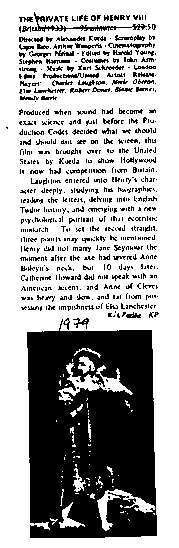 THE PRIVATE LIFE OF HENRY VIII
(Britain/1933) 95 minutes $29.50
Directed by Alexander Korda - Screenplay by
Lajos Biro, Arthur Wimperis - Cinematography
by Georges Périnal - Edited by Harold Young,
Stephen Harrison - Costumes by John Arm-
strong - Music by Kurt Schroeder - London
Films Production/United Artists Release.
Players: Charles Laughton, Merle Oberon,
Elsa Lanchester, Robert Donat, Binnie Barnes,
Wendy Barrie
Produced when sound had become an
exact science and just before the Pro-
duction Codes decided what we should
and should not see on the screen, this
film was brought over to the United
States by Korda to show Hollywood
it now had competition from Britain.
Laughton entered into Henry's char-
acter deeply, studying his biographies,
reading the letters, delving into English
Tudor history, and emerging with a new
psychological portrait of that eccentric
monarch. To set the record straight,
three points may quickly be mentioned:
Henry did not marry Jane Seymour the
moment after the axe had severed Anne
Boleyn's neck, but 10 days later.
Catherine Howard did not speak with an
American accent, and Anne of Cleves
was heavy and slow, and far from pos-
sessing the impishness of Elsa Lanchester.
KP
1979